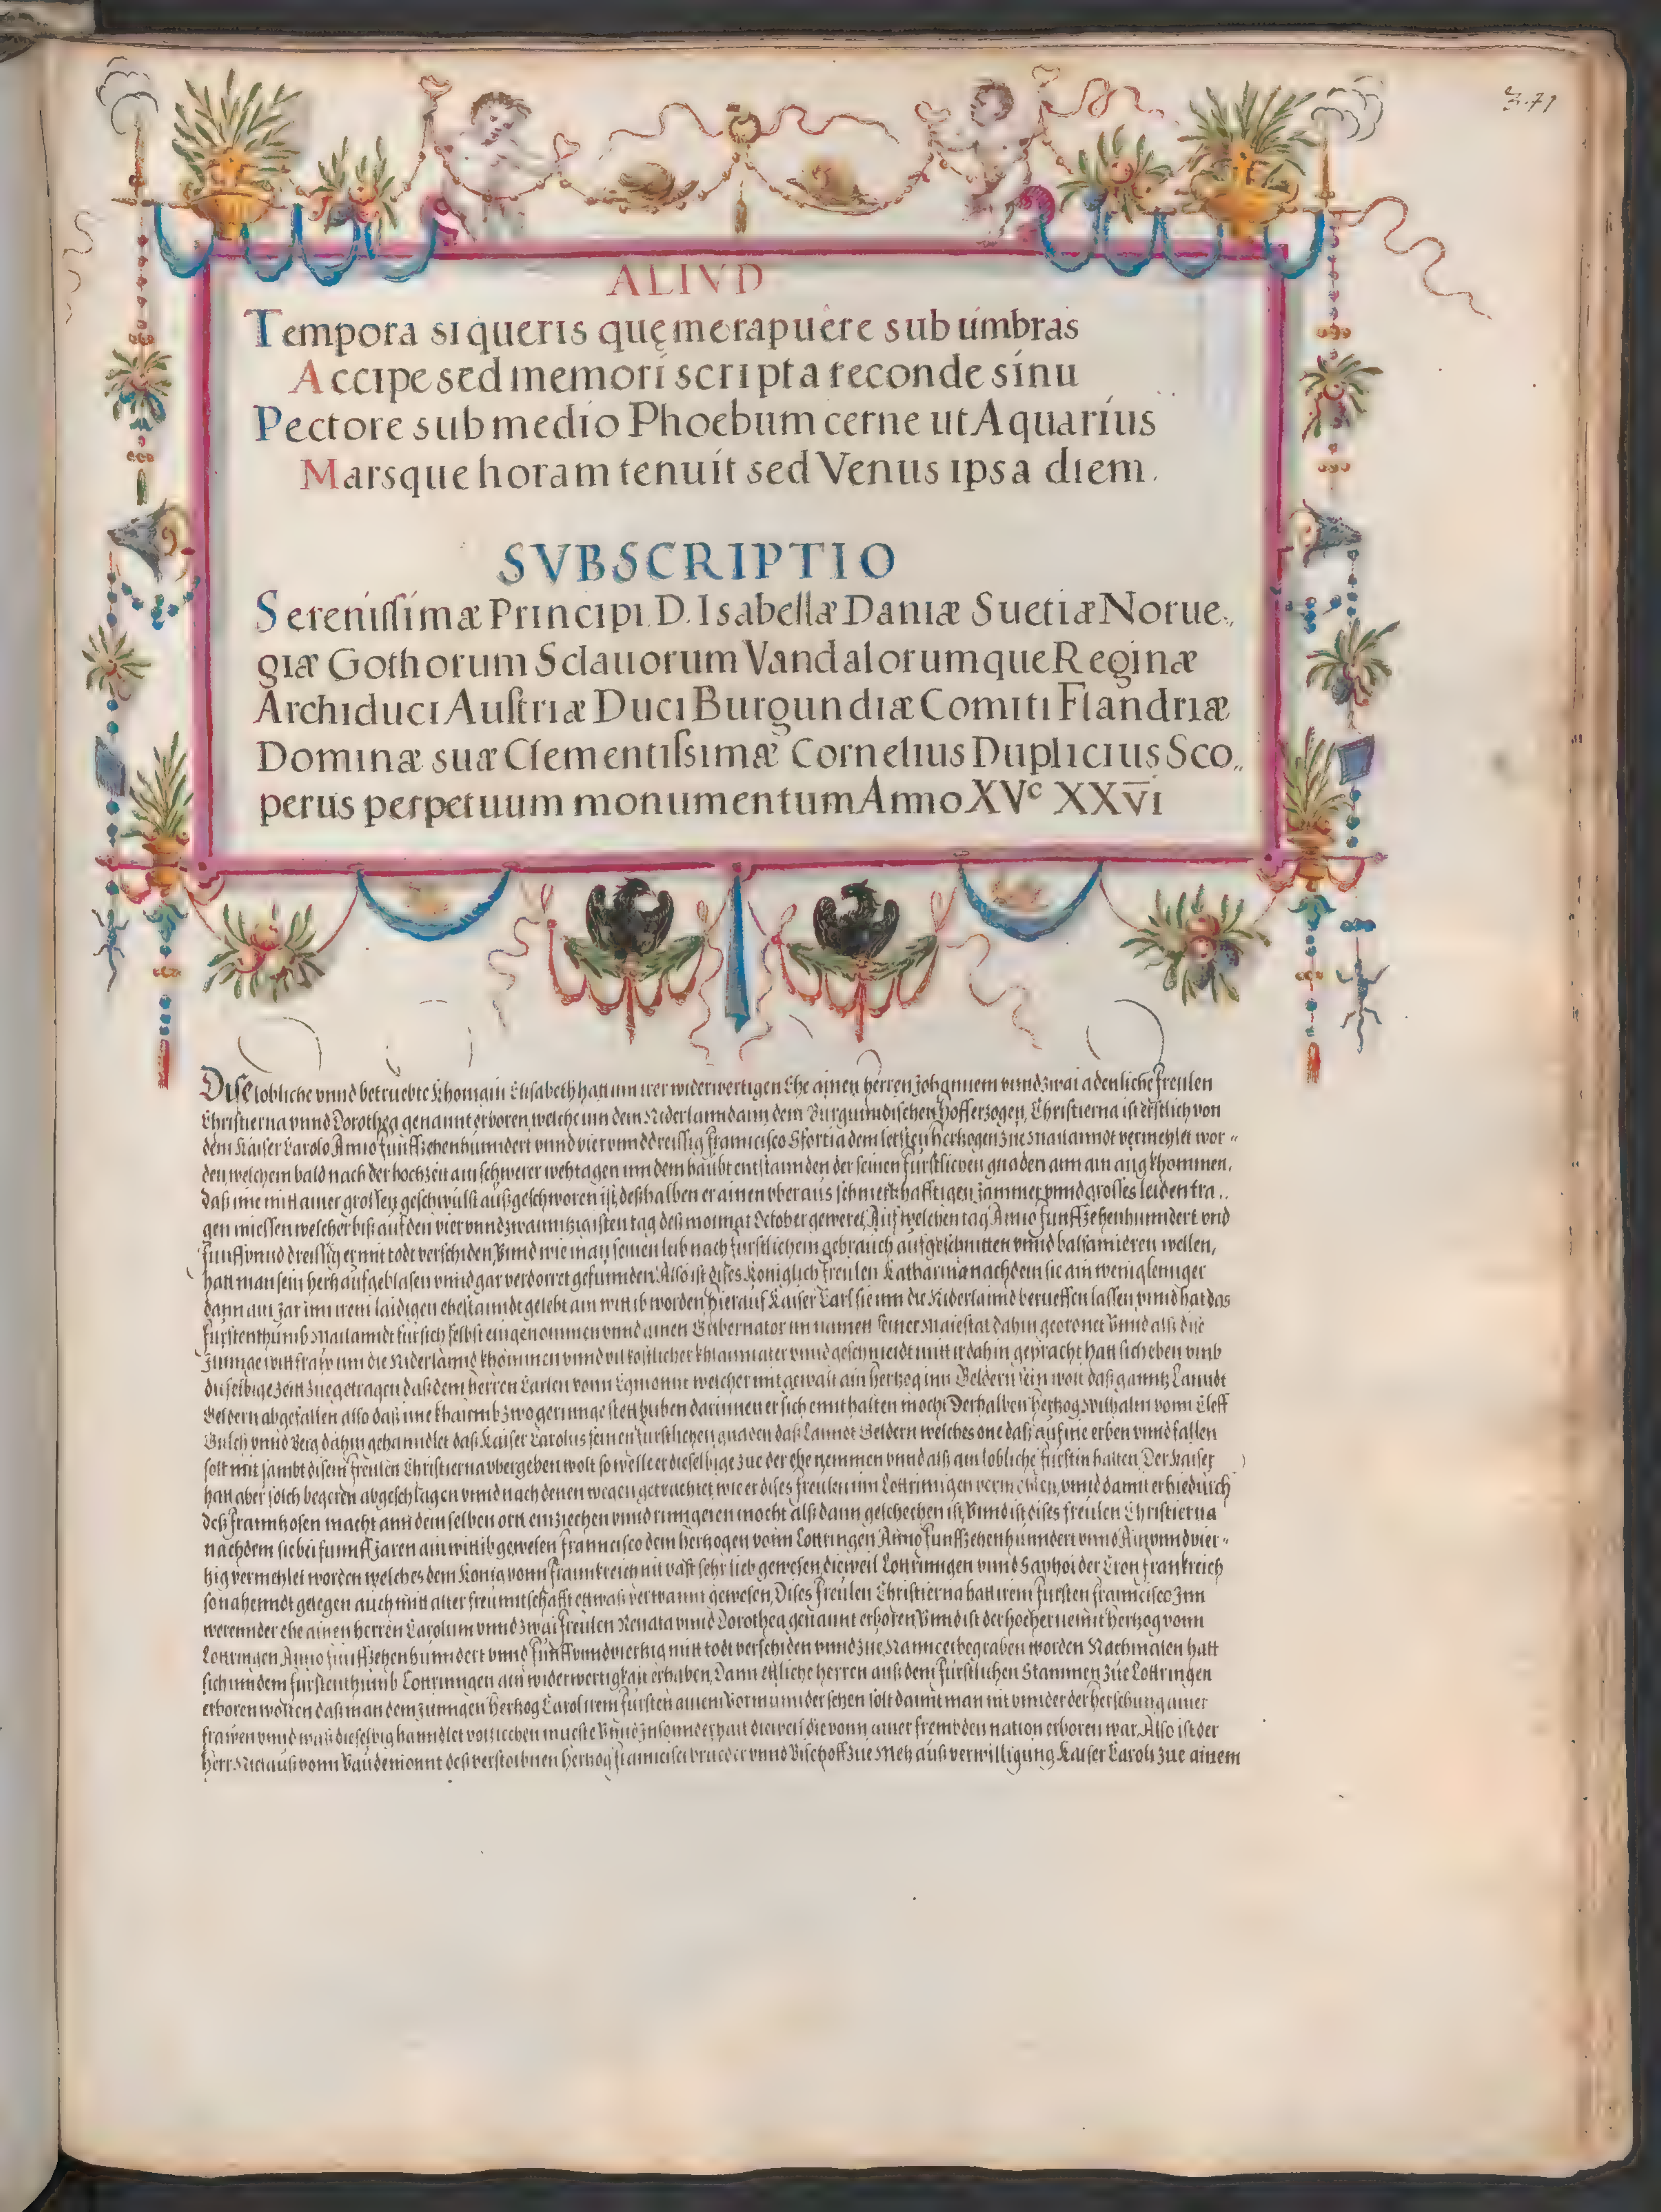 3.71
ALIVD
Tempora si queris quę me rapuêre sub umbras
Accipe sed memori scripta reconde sinu
Pectore sub medio Phoebum cerne ut Aquarius
Marsque horam tenuit sed Venus ipsa diem.
SVBSCRIPTIO
Serenissimæ Principi D. Isabellæ Daniæ Suetiæ Norue„
giæ Gothorum Sclauorum Vandalorumque Reginæ
Archiduci Austriæ Duci Burgundiæ Comiti Flandriæ
Dominæ suæ Clementissimæ Cornelius Duplicius Sco„
perus perpetuum monumentum Anno XVc XXVI
Dise lobliche vnnd betruebte Khönigin Elisabeth hatt inn irer widerwertigen Ehe ainen herren Johannem vnnd zwai adenliche freulen
Christierna vnnd Dorothea genannt erboren, welche inn dem Niderlannd ann dem Burgundischen Hoff erzogen, Christierna ist erstlich von
dem Kaiser Carolo Anno funffzehenhundert vnnd vier vnnd dreissig Francisco Sfortia dem letsten hertzogen zue Mailanndt vermehlet wor„
den, welchem bald nach der hochzeit ain schwerer wehtagen inn dem haubt entstannden der seinen fürstlichen gnaden ann ain aug khommen,
daß ime mitt ainer grossen geschwulst außgeschworen ist, deßhalben er ainen vberaus schmertzhafftigen Jammer vnnd grosses leiden tra„
gen miessen welcher biß auf den vier vnnd zwaintzigisten tag deß monnat October geweret, Auf welchen tag Anno funffzehenhundert vnd
funff vnnd dreissig er mit todt verschiden, Vnnd wie man seinen leib nach furstlichem gebrauch aufgeschnitten vnnd balsamieren wellen,
hatt man sein hertz aufgeblasen vnnd gar verdorret gefunnden. Also ist dises Königlich freulen Katharina nachdem sie ain wenig lennger
dann ain Jar inn irem laidigen ehestanndt gelebt ain wittib worden, hierauf Kaiser Carl sie inn die Niderlannd berueffen lassen, vnnd hat das
furstenthumb Mailanndt für sich selbst eingenommen vnnd ainen Gubernator in namen seiner Maiestat dahin geordnet Vnnd alß dise
Junnge wittfraw inn die Niderlannd khommen vnnd vil kostlicher khlainater vnnd geschmeidt mitt ir dahin gepracht hatt sich eben vmb
dieselbige Zeitt zuegetragen daß dem herren Carlen vonn Egmonnt welcher mit gewalt ain hertzog inn Geldern sein wolt daß ganntz Lanndt
Geldern abgefallen also daß ime khaumb zwo geringe stett bliben darinnen er sich enthalten mocht Derhalben Hertzog Wilhalm vonn Cleff
Gulch vnnd Berg dahin gehanndlet daß Kaiser Carolus seinen furstlichen gnaden daß Lanndt Geldern welches one daß auf ine erben vnnd fallen
solt mit sambt disem freulen Christierna vbergeben wolt so welle er dieselbige zue der ehe nemmen vnnd alß ain lobliche furstin halten. Der Kaiser
hatt aber solch begeren abgeschlagen vnnd nach denen wegen getrachtet, wie er dises freulen inn Lottringen vermehlen, vnnd damit er hiedurch
deß Frannhosen macht ann dem selben ortt einziechen vnnd ringeren mocht alß dann geschechen ist, Vnnd ist dises freulen Christierna
nachdem sie bei funff Jaren ain wittib gewesen Francisco dem hertzogen vonn Lottringen Anno funffzehenhunndert vnnd Ain vnnd vier„
tzig vermehlet worden welches dem König vonn Frannkreich nit vast sehr lieb gewesen, dieweil Lottringen vnnd Saphoi der Cron Frankreich
so nahenndt gelegen auch mitt alter freuntschafft ettwaß verwannt gewesen, Dises freulen Christierna hatt irem fursten Francisco Inn
werennder ehe ainen herren Carolum vnnd zwai freulen Renata vnnd Dorothea genannt erboren, Vnnd ist der hochernennt Hertzog vonn
Lottringen Anno funffzehenhunndert vnnd funff vnnd viertzig mitt todt verschiden vnnd zue Nannce begraben worden Nachmalen hatt
sich inn dem fürstenthumb Lottringen ain widerwertigkait erhaben, Dann ettliche herren auß dem fürstlichen Stammen zue Lottringen
erboren wolten daß man dem jungen Hertzog Carol irem fursten ainem Vormunnder setzen solt damit man nit vnnder der hersehung ainer
frawen vnnd waß dieselbig hanndlet volziechen mueste Vnnd Innsonnderhait dieweil die vonn ainer frembden nation erboren war. Also ist der
herr Niclaus vonn Vaudemonnt deß verstorbnen Hertzog Francisci brueder vnnd Bischoff zue Metz auß verwilligung Kaiser Caroli zue ainem